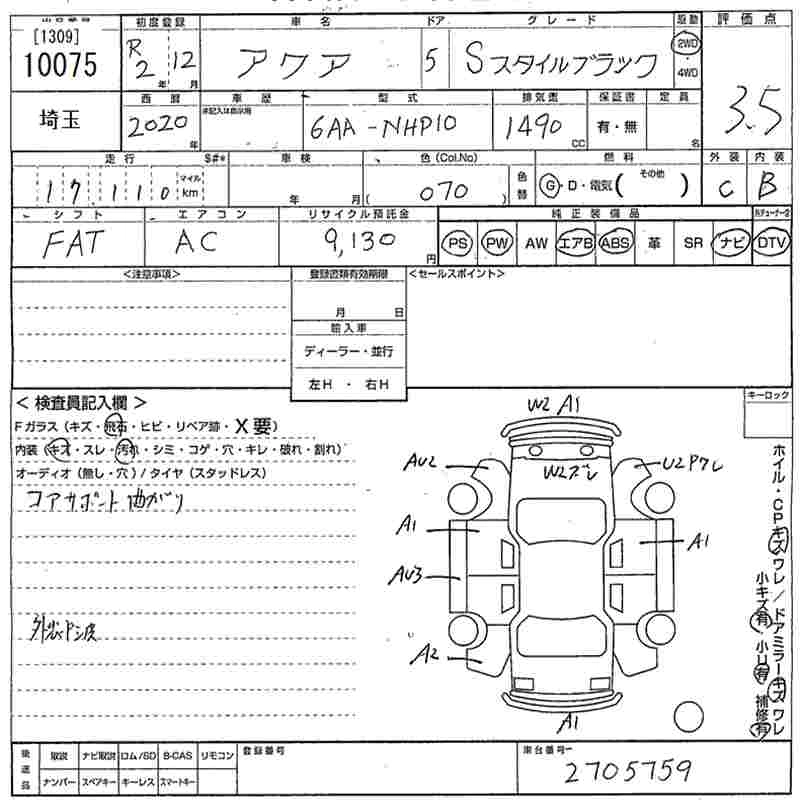 出品番号 初度登録 車名 ドア グレード 駆動 評価点
[1309]
10075 R2年 12月 アクア 5 Sスタイルブラック 2WD・4WD 3.5
埼玉 西暦 車歴 型式 排気量 保証書 定員
未記入は自家用
2020年 6AA-NHP10 1490 CC 有・無 名
走行 S#* 車検 色(Col.No) 燃料 外装 内装
17,110 マイル km 年 月( 070 ) 色替 G・D・電気( その他 ) C B
シフト エアコン リサイクル預託金 純正装備品
FAT AC 9,130円 PS PW AW エアB ABS 革 SR ナビ DTV
<注意事項> 登録書類有効期限 <セールスポイント>
月 日
輸入車
ディーラー・並行
左H・右H
<検査員記入欄> キーロック
Fガラス(キズ・飛石・ヒビ・リペア跡・X要)
内装(キズ・スレ・汚れ・シミ・コゲ・穴・キレ・破れ・割れ)
オーディオ(無し・穴)/タイヤ(スタッドレス)
コアサポート曲がり
W2 A1
AU2 W2ズレ U2ワレ
A1 A1
AU3
A2
A1
ホイル・CPキズワレ/ドアミラーキズワレ
小キズ有 小U有 補修有
後送品 取説 ナビ取説 ロム/SD B-CAS リモコン 登録番号 車台番号
ナンバー スペアキー キーレス スマートキー 2705759